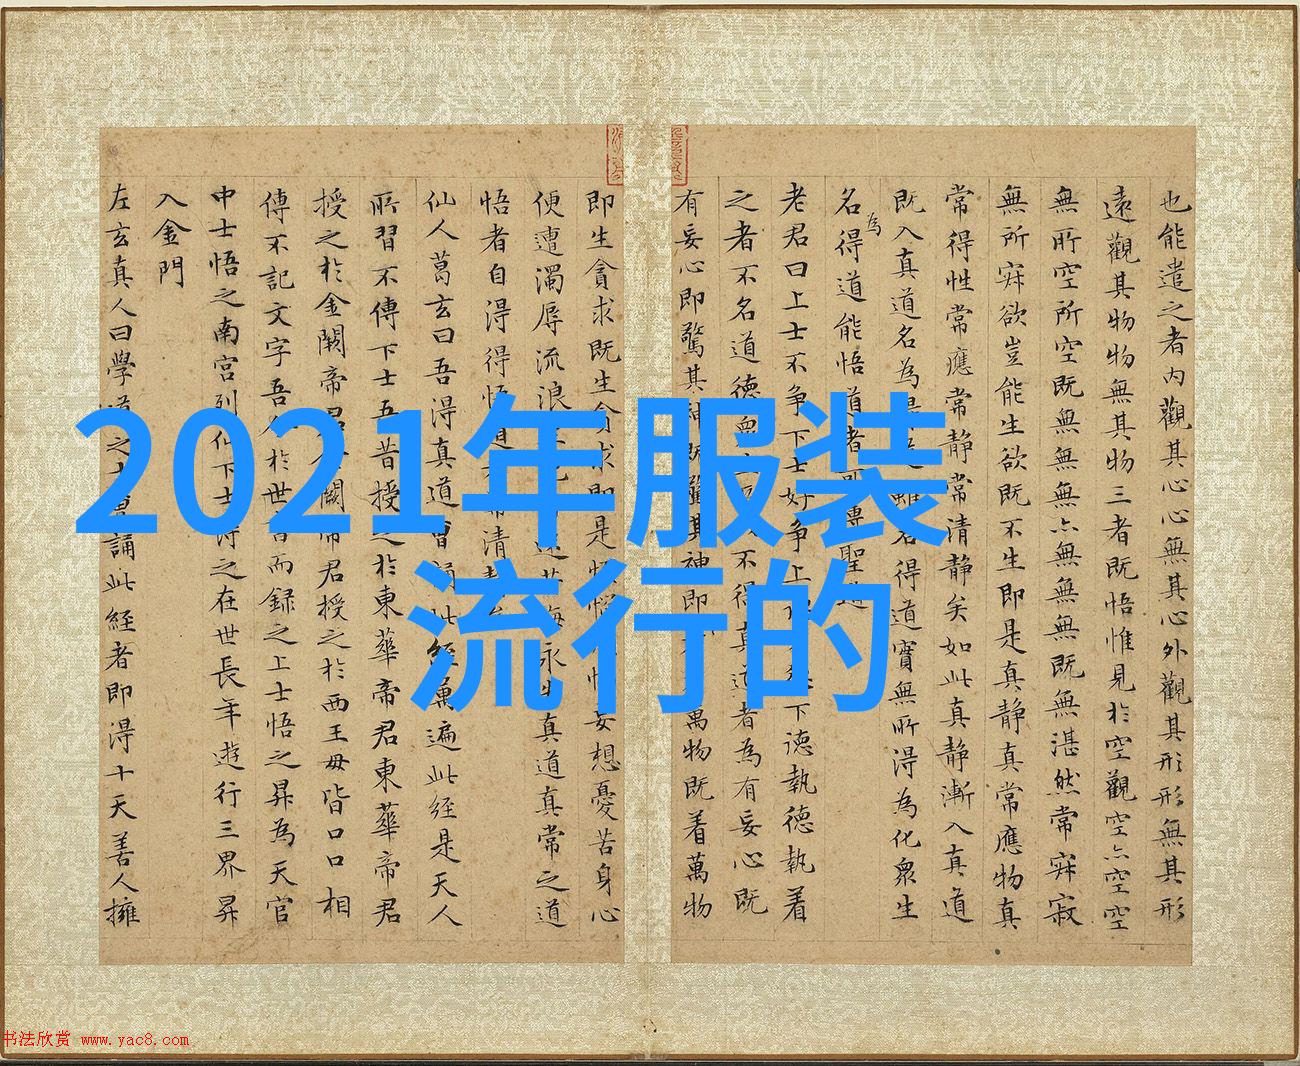 也能遣之者內觀其心心無其心外觀其形形無其形
遠觀其物物無其物三者既悟惟見於空觀空亦空空
無所空所空既無無無亦無無無既無湛然常寂
無所寂欲豈能生欲既不生即是真静真常應物真
常得性常應常静常清静矣如此真静漸入真道
既入真道名為得道雖名得道實無所得為化眾生
名為得道能悟道者可傳聖道
老君曰上士不争下士好争上德不德下德執德執着
之者不名道德眾不得真道者為有妄心既
有妄心即驚其神既驚其神即萬物既着萬物
即生貪求既生貪求即是煩惱妄想憂苦身心
便遭濁辱流浪苦海永失真道真常之道
悟者自得得悟道常清静
仙人葛玄曰吾得真道曾誦此經萬遍此経是天人
所習不傳下士吾昔授之於東華帝君東華帝君
授之於金闕帝君金闕帝君授之於西王母皆口口相
傳不記文字吾今於世書而録之上士悟之昇為天官
中士悟之南宫列仙下士得之在世長年遊行三界昇
入金門
左玄真人曰學道之士誦此經者即得十天善人擁
2021年服装
流行的
书法欣赏 www.yac8.com